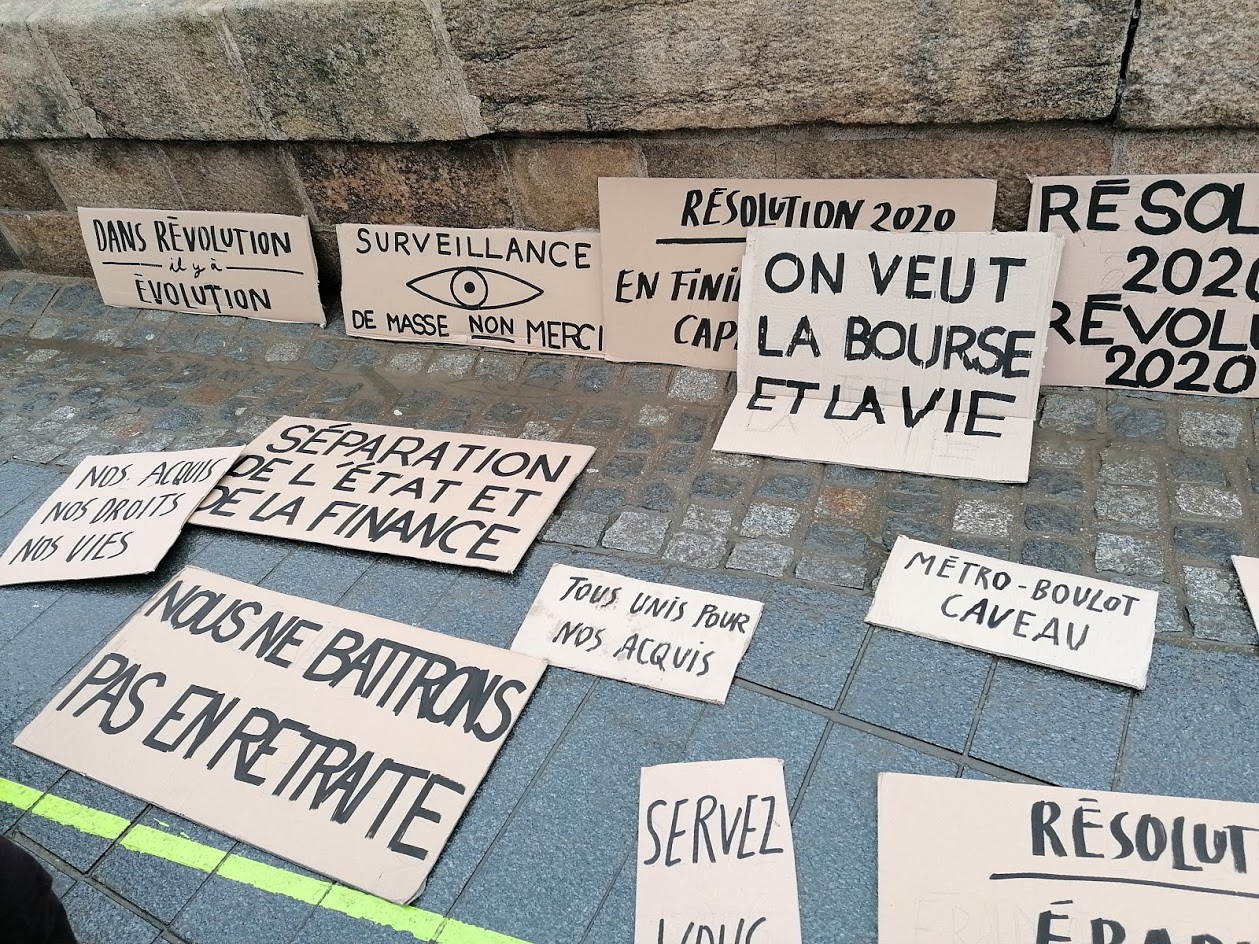 DANS RÉVOLUTION
il y à
ÉVOLUTION
SURVEILLANCE
DE MASSE NON MERCI
RÉSOLUTION 2020
EN
ON VEUT
LA BOURSE
ET LA VIE
2020
2020
NOS ACQUIS
NOS DROITS
NOS VIES
SÉPARATION
DE L'ÉTAT ET
DE LA FINANCE
NOUS NE BATTRONS
PAS EN RETRAITE
TOUS UNIS POUR
NOS ACQUIS
MÉTRO-BOULOT
CAVEAU
SERVEZ